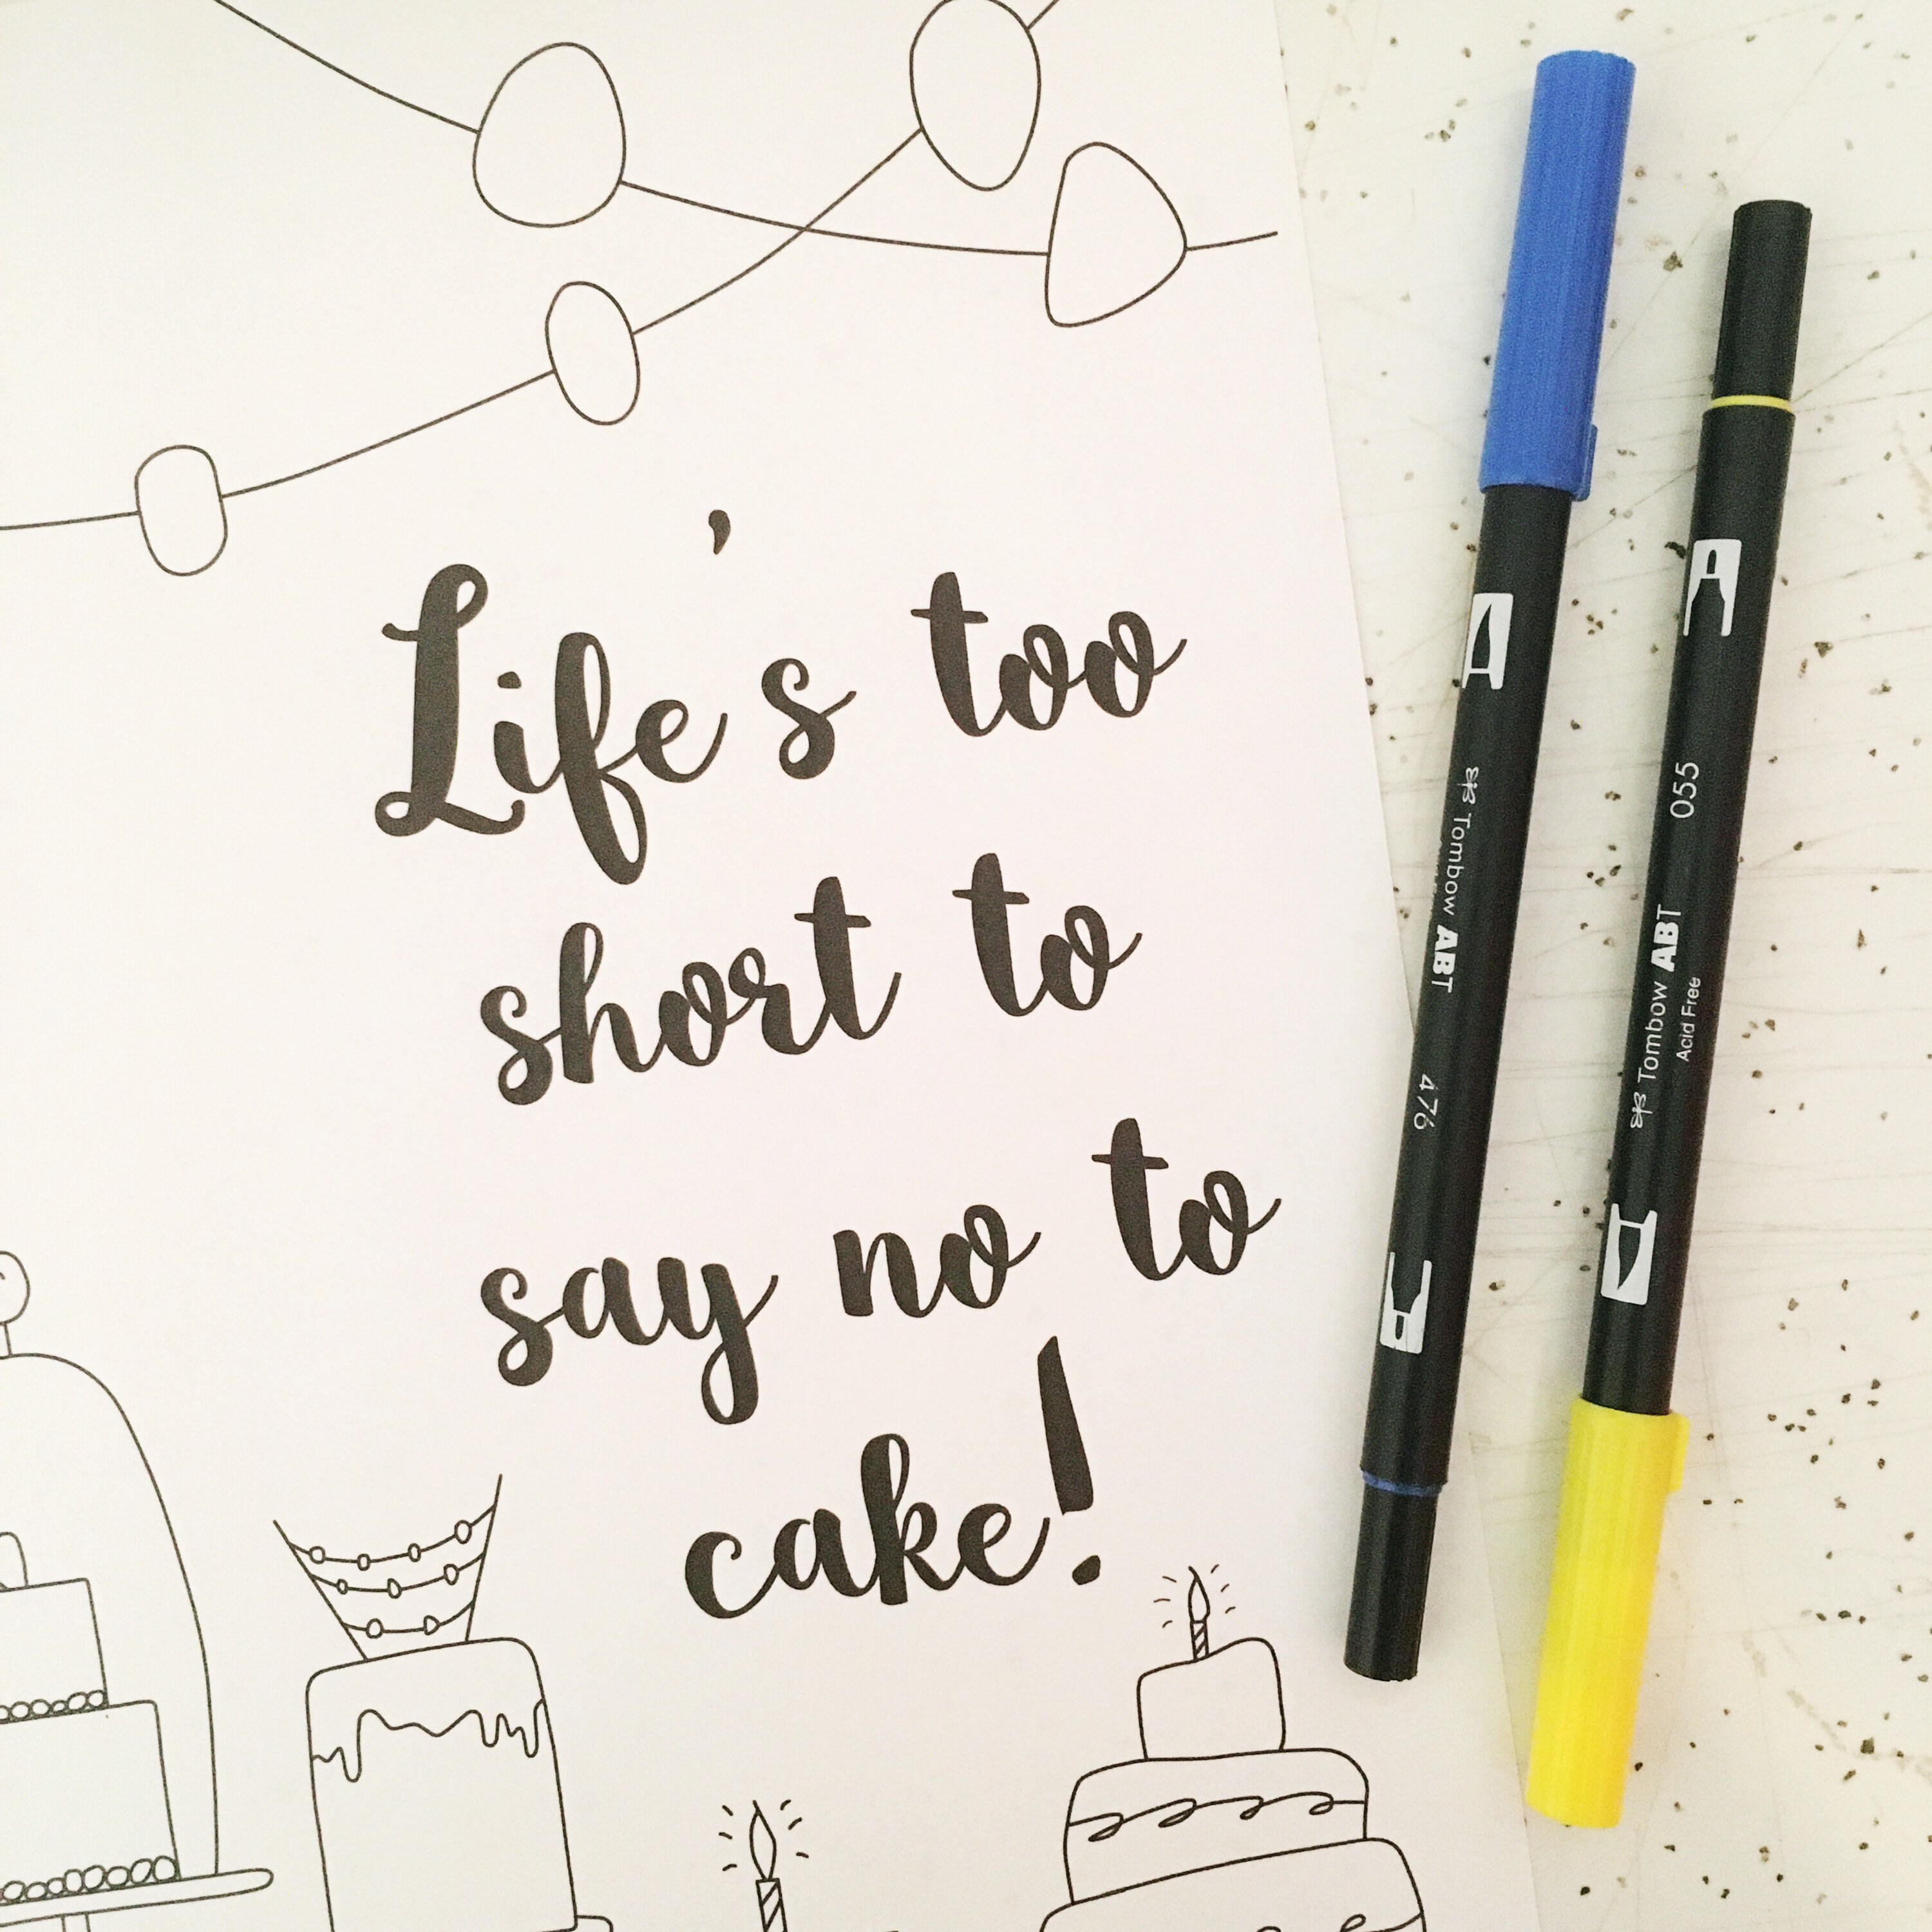 Life's too
short to
say no to
cake!
Tombow ABT 476
Tombow ABT 055
Acid Free